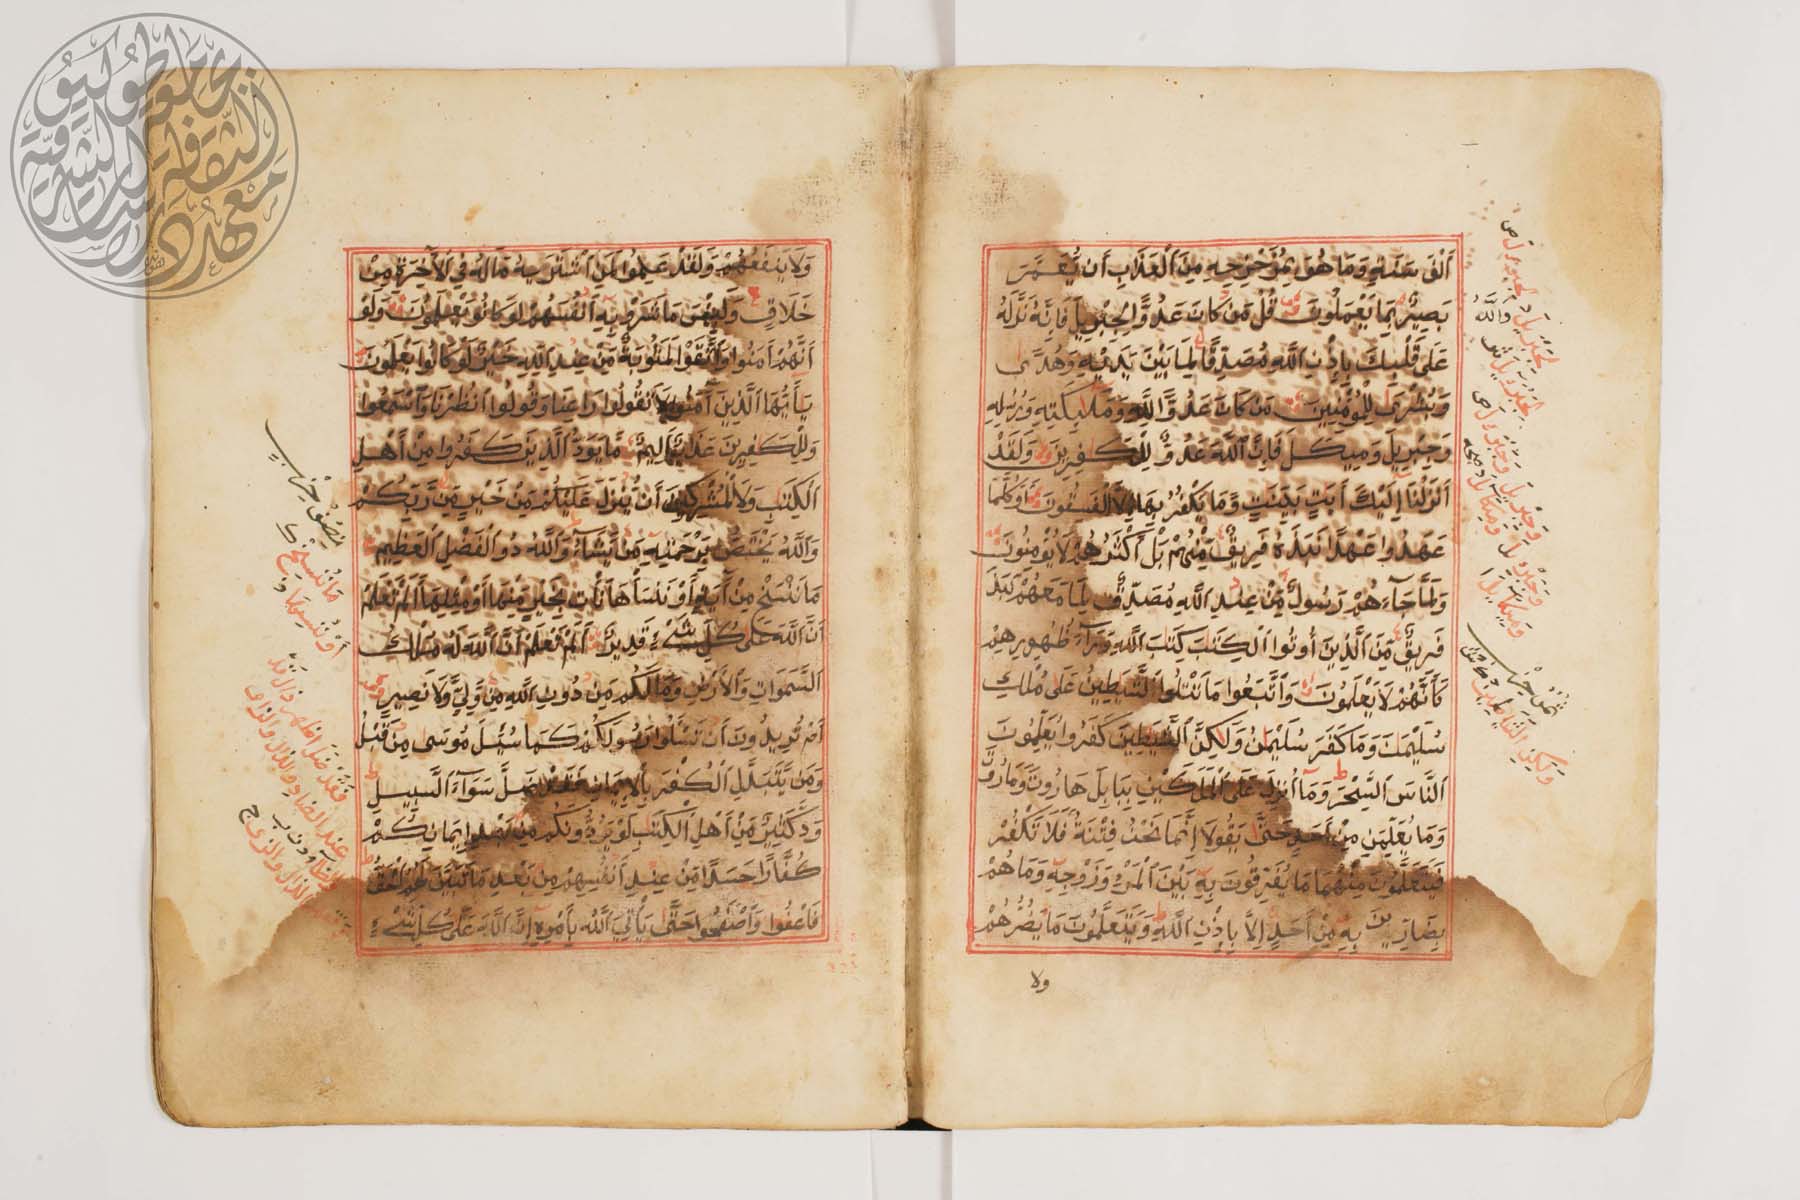 أَلْفَ سَنَةٍ وَمَا هُوَ بِمُزَحْزِحِهِ مِنَ ٱلْعَذَابِ أَن يُعَمَّرَ
بَصِيرٌ بِمَا يَعْمَلُونَ قُلْ مَن كَانَ عَدُوًّا لِجِبْرِيلَ فَإِنَّهُ نَزَّلَهُ
عَلَى قَلْبِكَ بِإِذْنِ ٱللَّهِ مُصَدِّقًا لِمَا بَيْنَ يَدَيْهِ وَهُدًى
وَبُشْرَى لِلْمُؤْمِنِينَ مَن كَانَ عَدُوًّا لِلَّهِ وَمَلَٰئِكَتِهِ وَرُسُلِهِ
وَجِبْرِيلَ وَمِيكَٰلَ فَإِنَّ ٱللَّهَ عَدُوٌّ لِلْكَٰفِرِينَ وَلَقَدْ
أَنزَلْنَا إِلَيْكَ ءَايَٰتٍ بَيِّنَٰتٍ وَمَا يَكْفُرُ بِهَا إِلَّا ٱلْفَٰسِقُونَ أَوَكُلَّمَا
عَٰهَدُوا عَهْدًا نَبَذَهُ فَرِيقٌ مِنْهُمْ بَلْ أَكْثَرُهُمْ لَا يُؤْمِنُونَ
وَلَمَّا جَآءَهُمْ رَسُولٌ مِنْ عِندِ ٱللَّهِ مُصَدِّقٌ لِمَا مَعَهُمْ نَبَذَ
فَرِيقٌ مِنَ ٱلَّذِينَ أُوتُوا ٱلْكِتَٰبَ كِتَٰبَ ٱللَّهِ وَرَآءَ ظُهُورِهِمْ
كَأَنَّهُمْ لَا يَعْلَمُونَ وَٱتَّبَعُوا مَا تَتْلُوا ٱلشَّيَٰطِينُ عَلَى مُلْكِ
سُلَيْمَٰنَ وَمَا كَفَرَ سُلَيْمَٰنُ وَلَٰكِنَّ ٱلشَّيَٰطِينَ كَفَرُوا يُعَلِّمُونَ
ٱلنَّاسَ ٱلسِّحْرَ وَمَا أُنزِلَ عَلَى ٱلْمَلَكَيْنِ بِبَابِلَ هَارُوتَ وَمَارُوتَ
وَمَا يُعَلِّمَٰنِ مِنْ أَحَدٍ حَتَّى يَقُولَا إِنَّمَا نَحْنُ فِتْنَةٌ فَلَا تَكْفُرْ
فَيَتَعَلَّمُونَ مِنْهُمَا مَا يُفَرِّقُونَ بِهِ بَيْنَ ٱلْمَرْءِ وَزَوْجِهِ وَمَا هُمْ
بِضَآرِّينَ بِهِ مِنْ أَحَدٍ إِلَّا بِإِذْنِ ٱللَّهِ وَيَتَعَلَّمُونَ مَا يَضُرُّهُمْ
ولا
وَلَا يَنفَعُهُمْ وَلَقَدْ عَلِمُوا لَمَنِ ٱشْتَرَىٰهُ مَالَهُ فِي ٱلْآخِرَةِ مِنْ
خَلَاقٍ وَلَبِئْسَ مَا شَرَوْا بِهِ أَنفُسَهُمْ لَوْ كَانُوا يَعْلَمُونَ وَلَوْ
أَنَّهُمْ ءَامَنُوا وَٱتَّقَوْا لَمَثُوبَةٌ مِنْ عِندِ ٱللَّهِ خَيْرٌ لَوْ كَانُوا يَعْلَمُونَ
يَٰأَيُّهَا ٱلَّذِينَ ءَامَنُوا لَا تَقُولُوا رَٰعِنَا وَقُولُوا ٱنظُرْنَا وَٱسْمَعُوا
وَلِلْكَٰفِرِينَ عَذَابٌ أَلِيمٌ مَا يَوَدُّ ٱلَّذِينَ كَفَرُوا مِنْ أَهْلِ
ٱلْكِتَٰبِ وَلَا ٱلْمُشْرِكِينَ أَن يُنَزَّلَ عَلَيْكُمْ مِنْ خَيْرٍ مِنْ رَبِّكُمْ
وَٱللَّهُ يَخْتَصُّ بِرَحْمَتِهِ مَن يَشَآءُ وَٱللَّهُ ذُو ٱلْفَضْلِ ٱلْعَظِيمِ
مَا نَنْسَخْ مِنْ ءَايَةٍ أَوْ نَنْسَأْهَا نَأْتِ بِخَيْرٍ مِنْهَا أَوْ مِثْلِهَا أَلَمْ تَعْلَمْ
أَنَّ ٱللَّهَ عَلَى كُلِّ شَيْءٍ قَدِيرٌ أَلَمْ تَعْلَمْ أَنَّ ٱللَّهَ لَهُ مُلْكُ
ٱلسَّمَٰوَاتِ وَٱلْأَرْضِ وَمَا لَكُمْ مِنْ دُونِ ٱللَّهِ مِنْ وَلِيٍّ وَلَا نَصِيرٍ
أَمْ تُرِيدُونَ أَنْ تَسْـَٔلُوا رَسُولَكُمْ كَمَا سُئِلَ مُوسَى مِنْ قَبْلُ
وَمَنْ يَتَبَدَّلِ ٱلْكُفْرَ بِٱلْإِيمَٰنِ فَقَدْ ضَلَّ سَوَآءَ ٱلسَّبِيلِ
وَدَّ كَثِيرٌ مِنْ أَهْلِ ٱلْكِتَٰبِ لَوْ يَرُدُّونَكُمْ مِنْ بَعْدِ إِيمَٰنِكُمْ
كُفَّارًا حَسَدًا مِنْ عِندِ أَنفُسِهِمْ مِنْ بَعْدِ مَا تَبَيَّنَ لَهُمُ ٱلْحَقُّ
فَٱعْفُوا وَٱصْفَحُوا حَتَّى يَأْتِيَ ٱللَّهُ بِأَمْرِهِ إِنَّ ٱللَّهَ عَلَى كُلِّ شَيْءٍ
نصف حزب
مَا نُنْسِخْ
أَوْ نُنْسِهَا